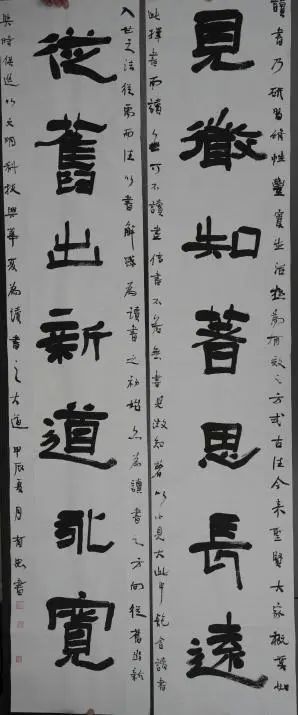 讀書乃研習修性豐實生活極為有效之方式古往今來聖賢大家概莫如
見微知著思長遠
此擇書而讀可不讀盡信書不如無書見微知著以小見大此中飽含讀書
入世之法從舊而往以書解惑為讀書之初始亦為讀書之方向從舊出新
從舊出新道永寬
與時俱進以文明科技興華夏為讀書之大道甲辰夏月書